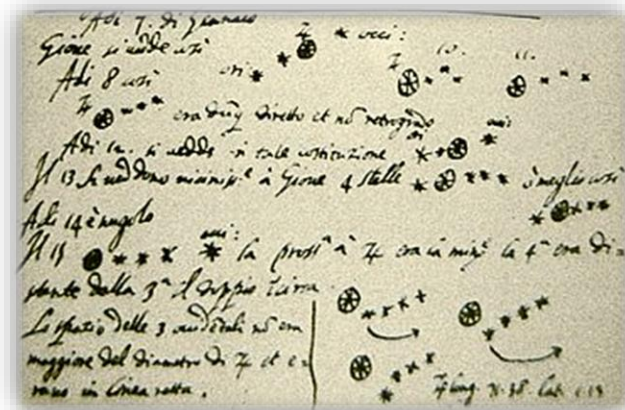 Adi 7. di Gennaio
Gione si vedde così ♃ occi:
Adi 8 così ori: ♃ 10. 11.
♃ era diretto et nō retrogrado
Adi 12. si vedde in tale costituzione ori occi
Il 13 si veddono vicinis.e à Gione 4 stelle ò meglio così
Adi 14 è nugolo
Il 15 occi: la pross.a à ♃ era la min.e la 4.a era di=
stante dalla 3.a il doppio
Lo spatio delle 3 occidentali nō era
maggiore del diametro di ♃ et e=
rano in linea retta.
♃ long. 71.38 lat. 1.13